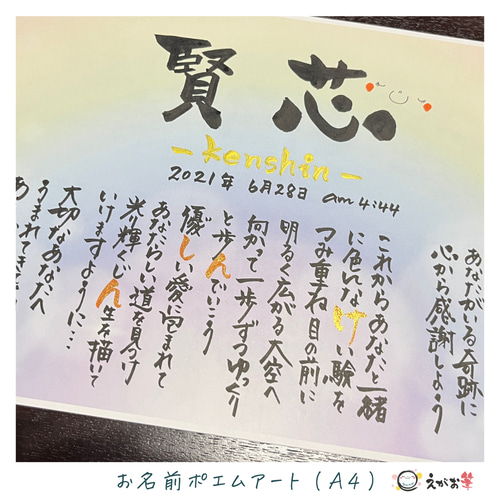 賢芯
-kenshin-
2021年 6月28日 am 4:44
あなたがいる奇跡に
心から感謝しよう
これからあなたと一緒
に色んなけい験を
つみ重ね目の前に
明るく広がる大空へ
向かって一歩ずつゆっくり
と歩んでいこう
優しい愛に包まれて
あなたらしい道を見つけ
光り輝くじん生を描いて
いけますように…
大切なあなたへ
うまれてきて
お名前ポエムアート(A4)
えがお筆